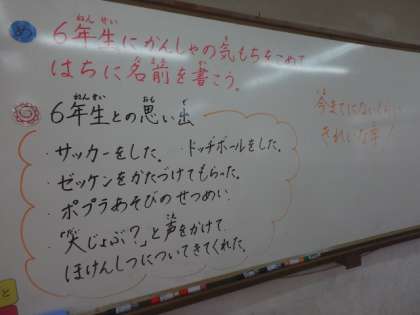 め 6年生にかんしゃの気もちをこめて
はちに名前を書こう。
6年生との思い出
・サッカーをした。 ・ドッチボールをした。
・ゼッケンをかたづけてもらった。
・ポプラあそびのせつめい。
・「大じょぶ?」と声をかけて、
ほけんしつについてきてくれた。
今までにないくらい
きれいな字!
と